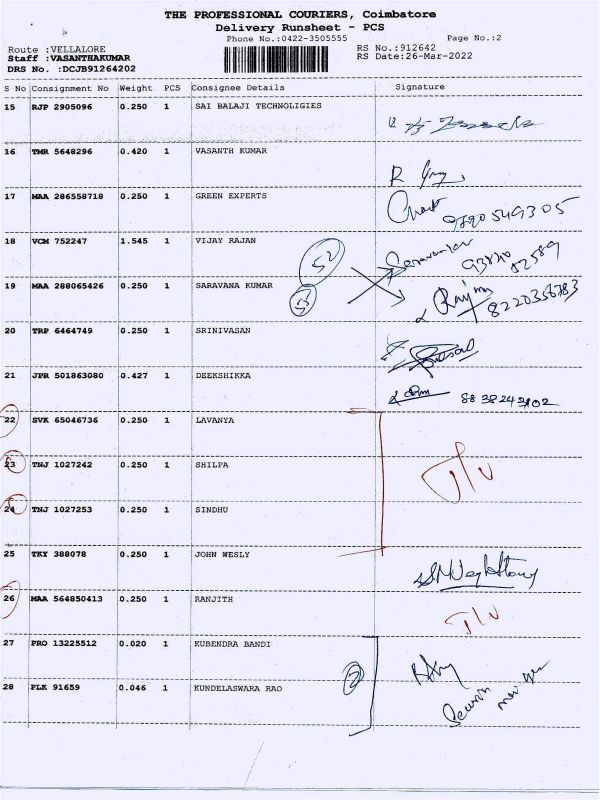 THE PROFESSIONAL COURIERS, Coimbatore
Delivery Runsheet - PCS
Phone No.:0422-3505555 Page No.:2
Route :VELLALORE RS No.:912642
Staff :VASANTHAKUMAR RS Date:26-Mar-2022
DRS No. :DCJB91264202
S No Consignment No Weight PCS Consignee Details Signature
15 RJP 2905096 0.250 1 SAI BALAJI TECHNOLIGIES
16 TMR 5648296 0.420 1 VASANTH KUMAR
17 MAA 286558718 0.250 1 GREEN EXPERTS
9890549305
18 VCM 752247 1.545 1 VIJAY RAJAN 52
19 MAA 288065426 0.250 1 SARAVANA KUMAR 53
8220356783
20 TRP 6464749 0.250 1 SRINIVASAN
21 JPR 501863080 0.427 1 DEEKSHIKKA
22 SVK 65046736 0.250 1 LAVANYA
23 TNJ 1027242 0.250 1 SHILPA
24 TNJ 1027253 0.250 1 SINDHU
25 TKY 388078 0.250 1 JOHN WESLY
26 MAA 564850413 0.250 1 RANJITH
27 PRO 13225512 0.020 1 KUBENDRA BANDI
28 PLK 91659 0.046 1 KUNDELASWARA RAO